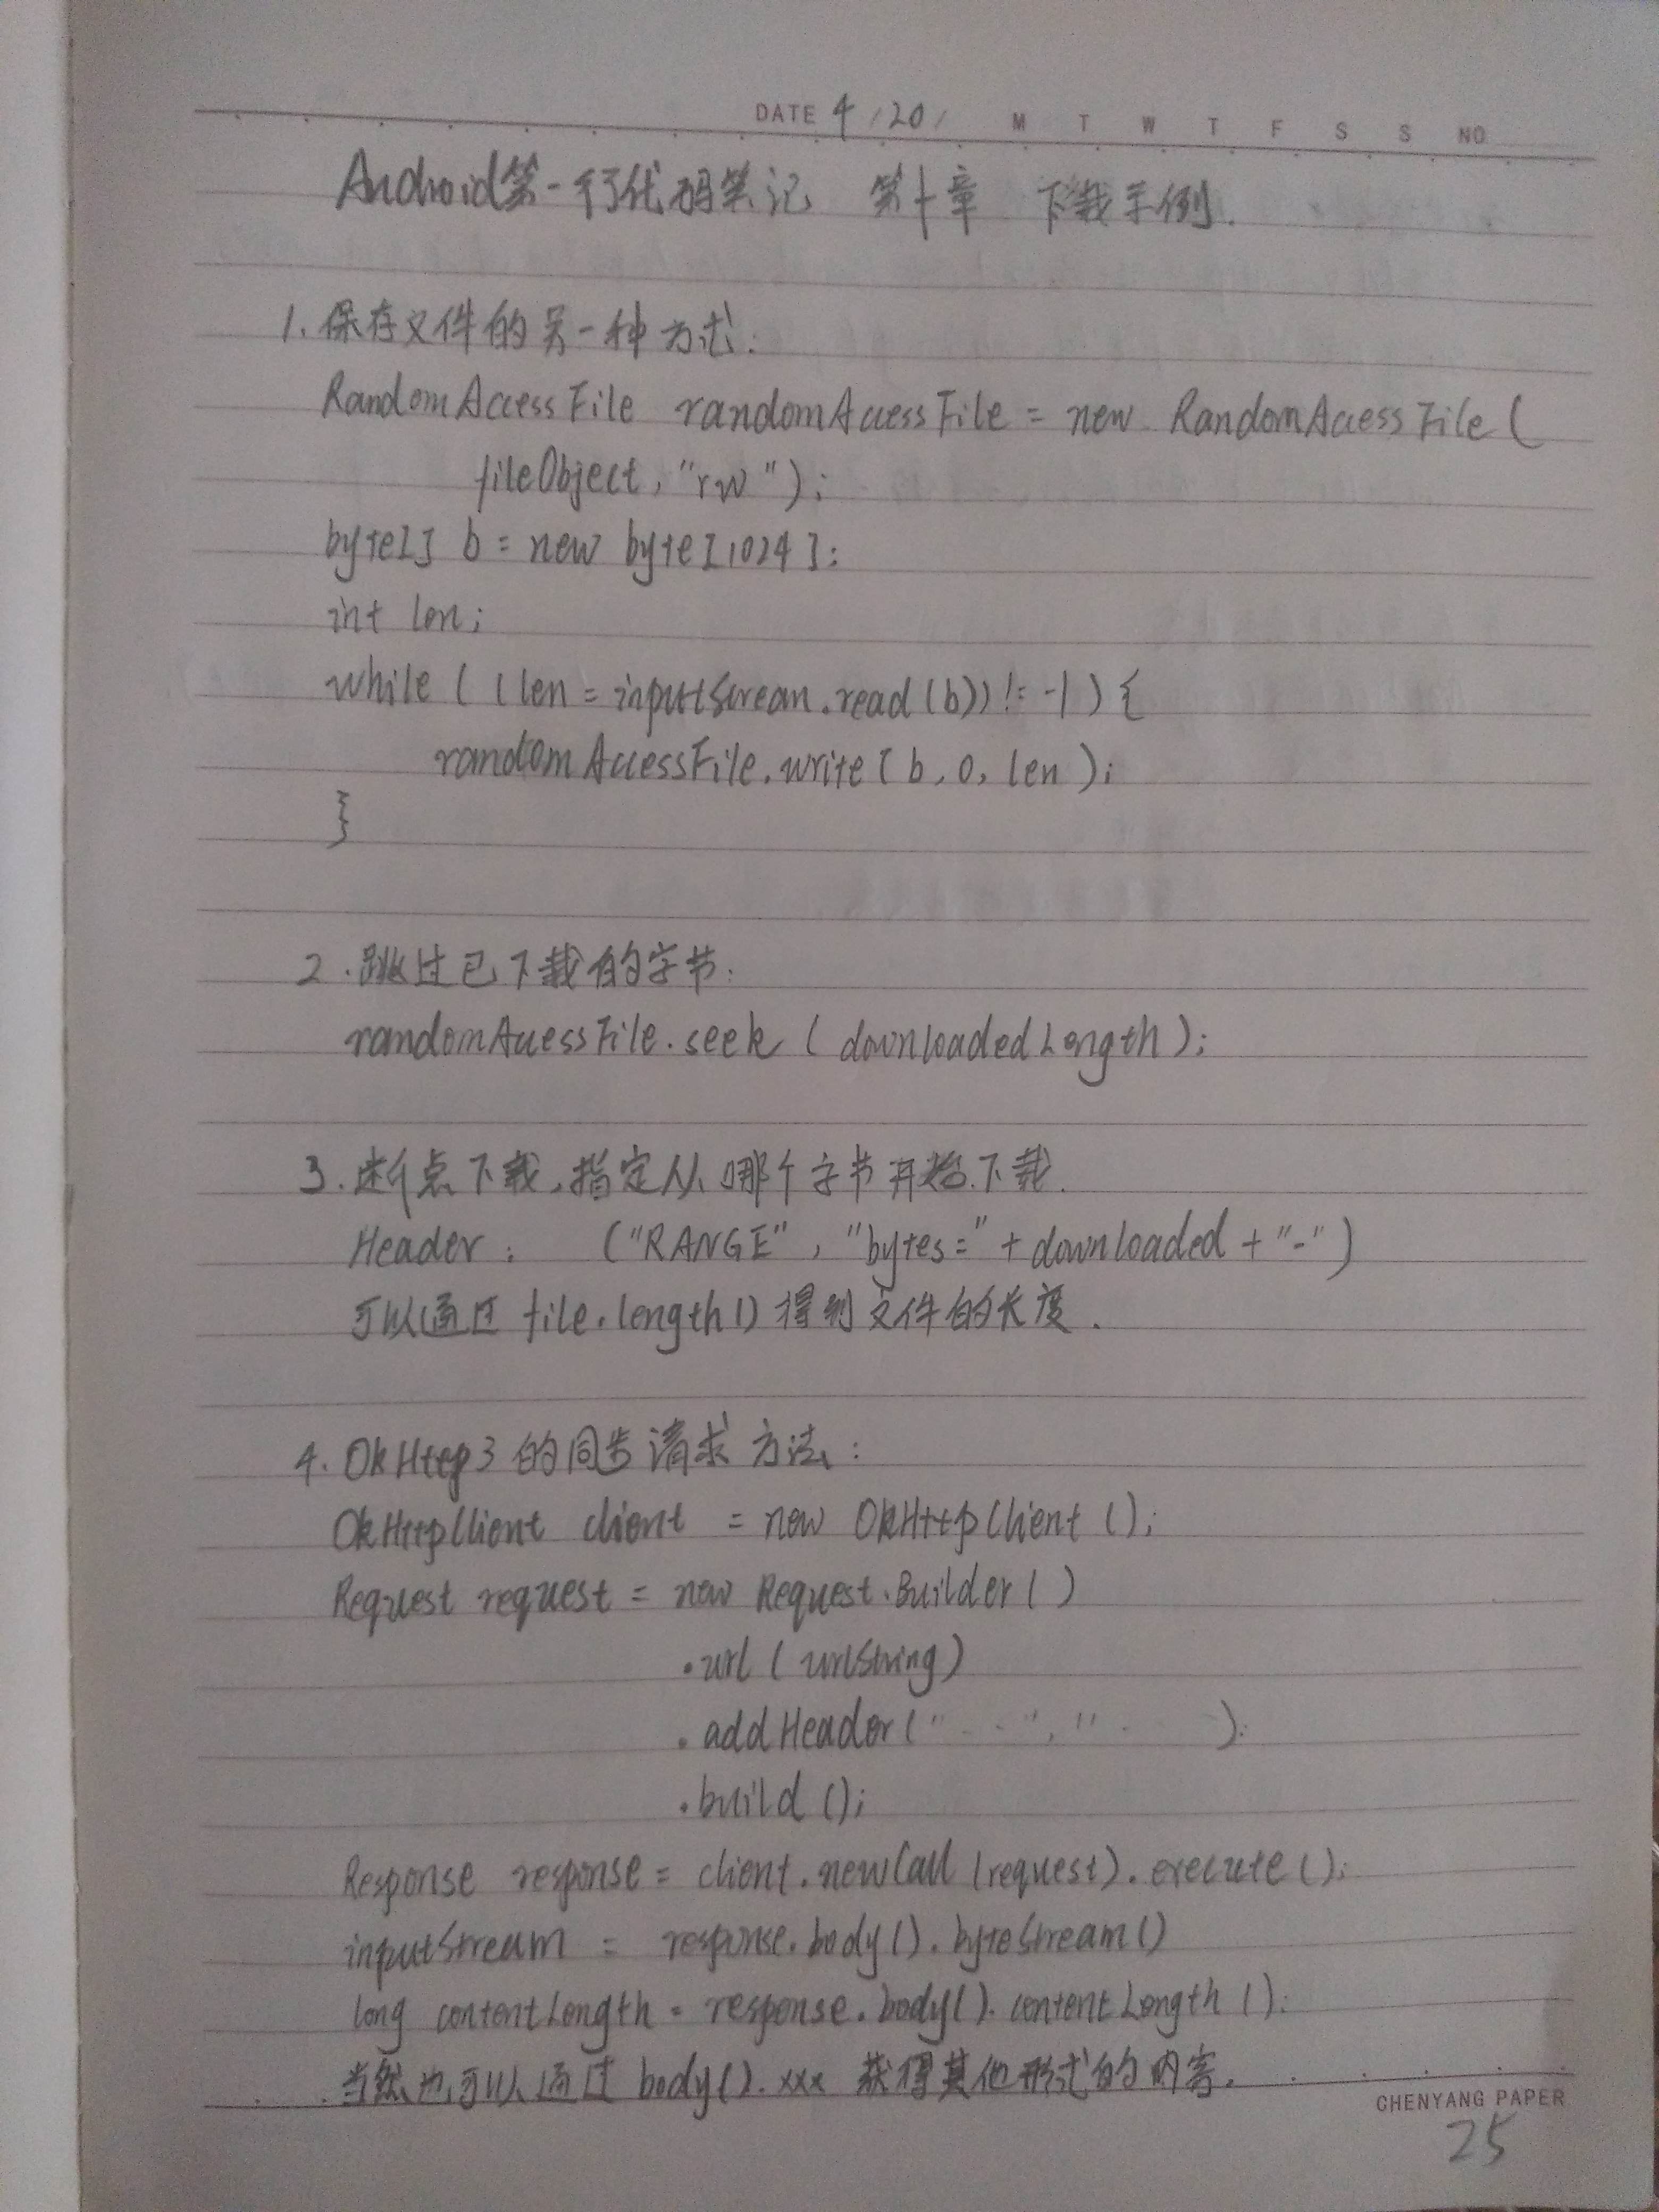 DATE 4/20/ M T W T F S S NO
Android第一行代码笔记 第十章 下载示例.
1. 保存文件的另一种方式:
RandomAccessFile randomAccessFile = new RandomAccessFile(
fileObject, "rw");
byte[] b = new byte[1024];
int len;
while ((len = inputStream.read(b)) != -1) {
randomAccessFile.write(b, 0, len);
}
2. 跳过已下载的字节:
randomAccessFile.seek(downloadedLength);
3. 断点下载,指定从哪个字节开始下载.
Header: ("RANGE", "bytes=" + downloaded + "-")
可以通过 file.length() 得到文件的长度.
4. OkHttp3 的同步请求方法:
OkHttpClient client = new OkHttpClient();
Request request = new Request.Builder()
.url(urlString)
.addHeader("--", "- ).
.build();
Response response = client.newCall(request).execute();
inputStream = response.body().byteStream()
long contentLength = response.body().contentLength();
当然也可以通过 body().xxx 获得其他形式的内容.
CHENYANG PAPER
25